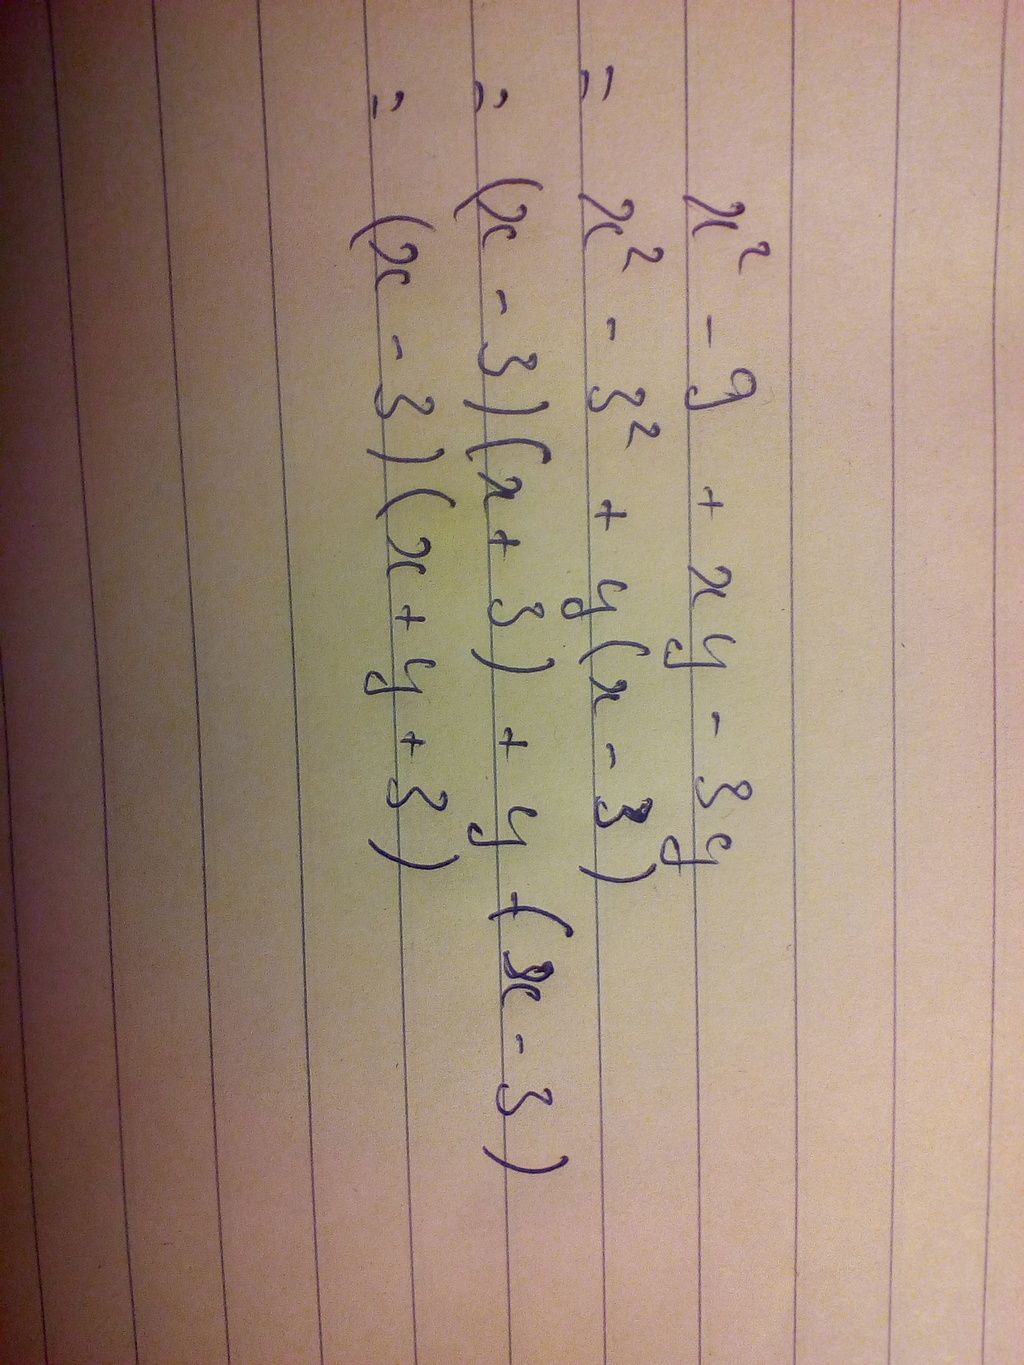 x² - 9 + xy - 3y
= x² - 3² + y(x - 3)
= (x - 3)(x + 3) + y + (x - 3)
= (x - 3)(x + y + 3)